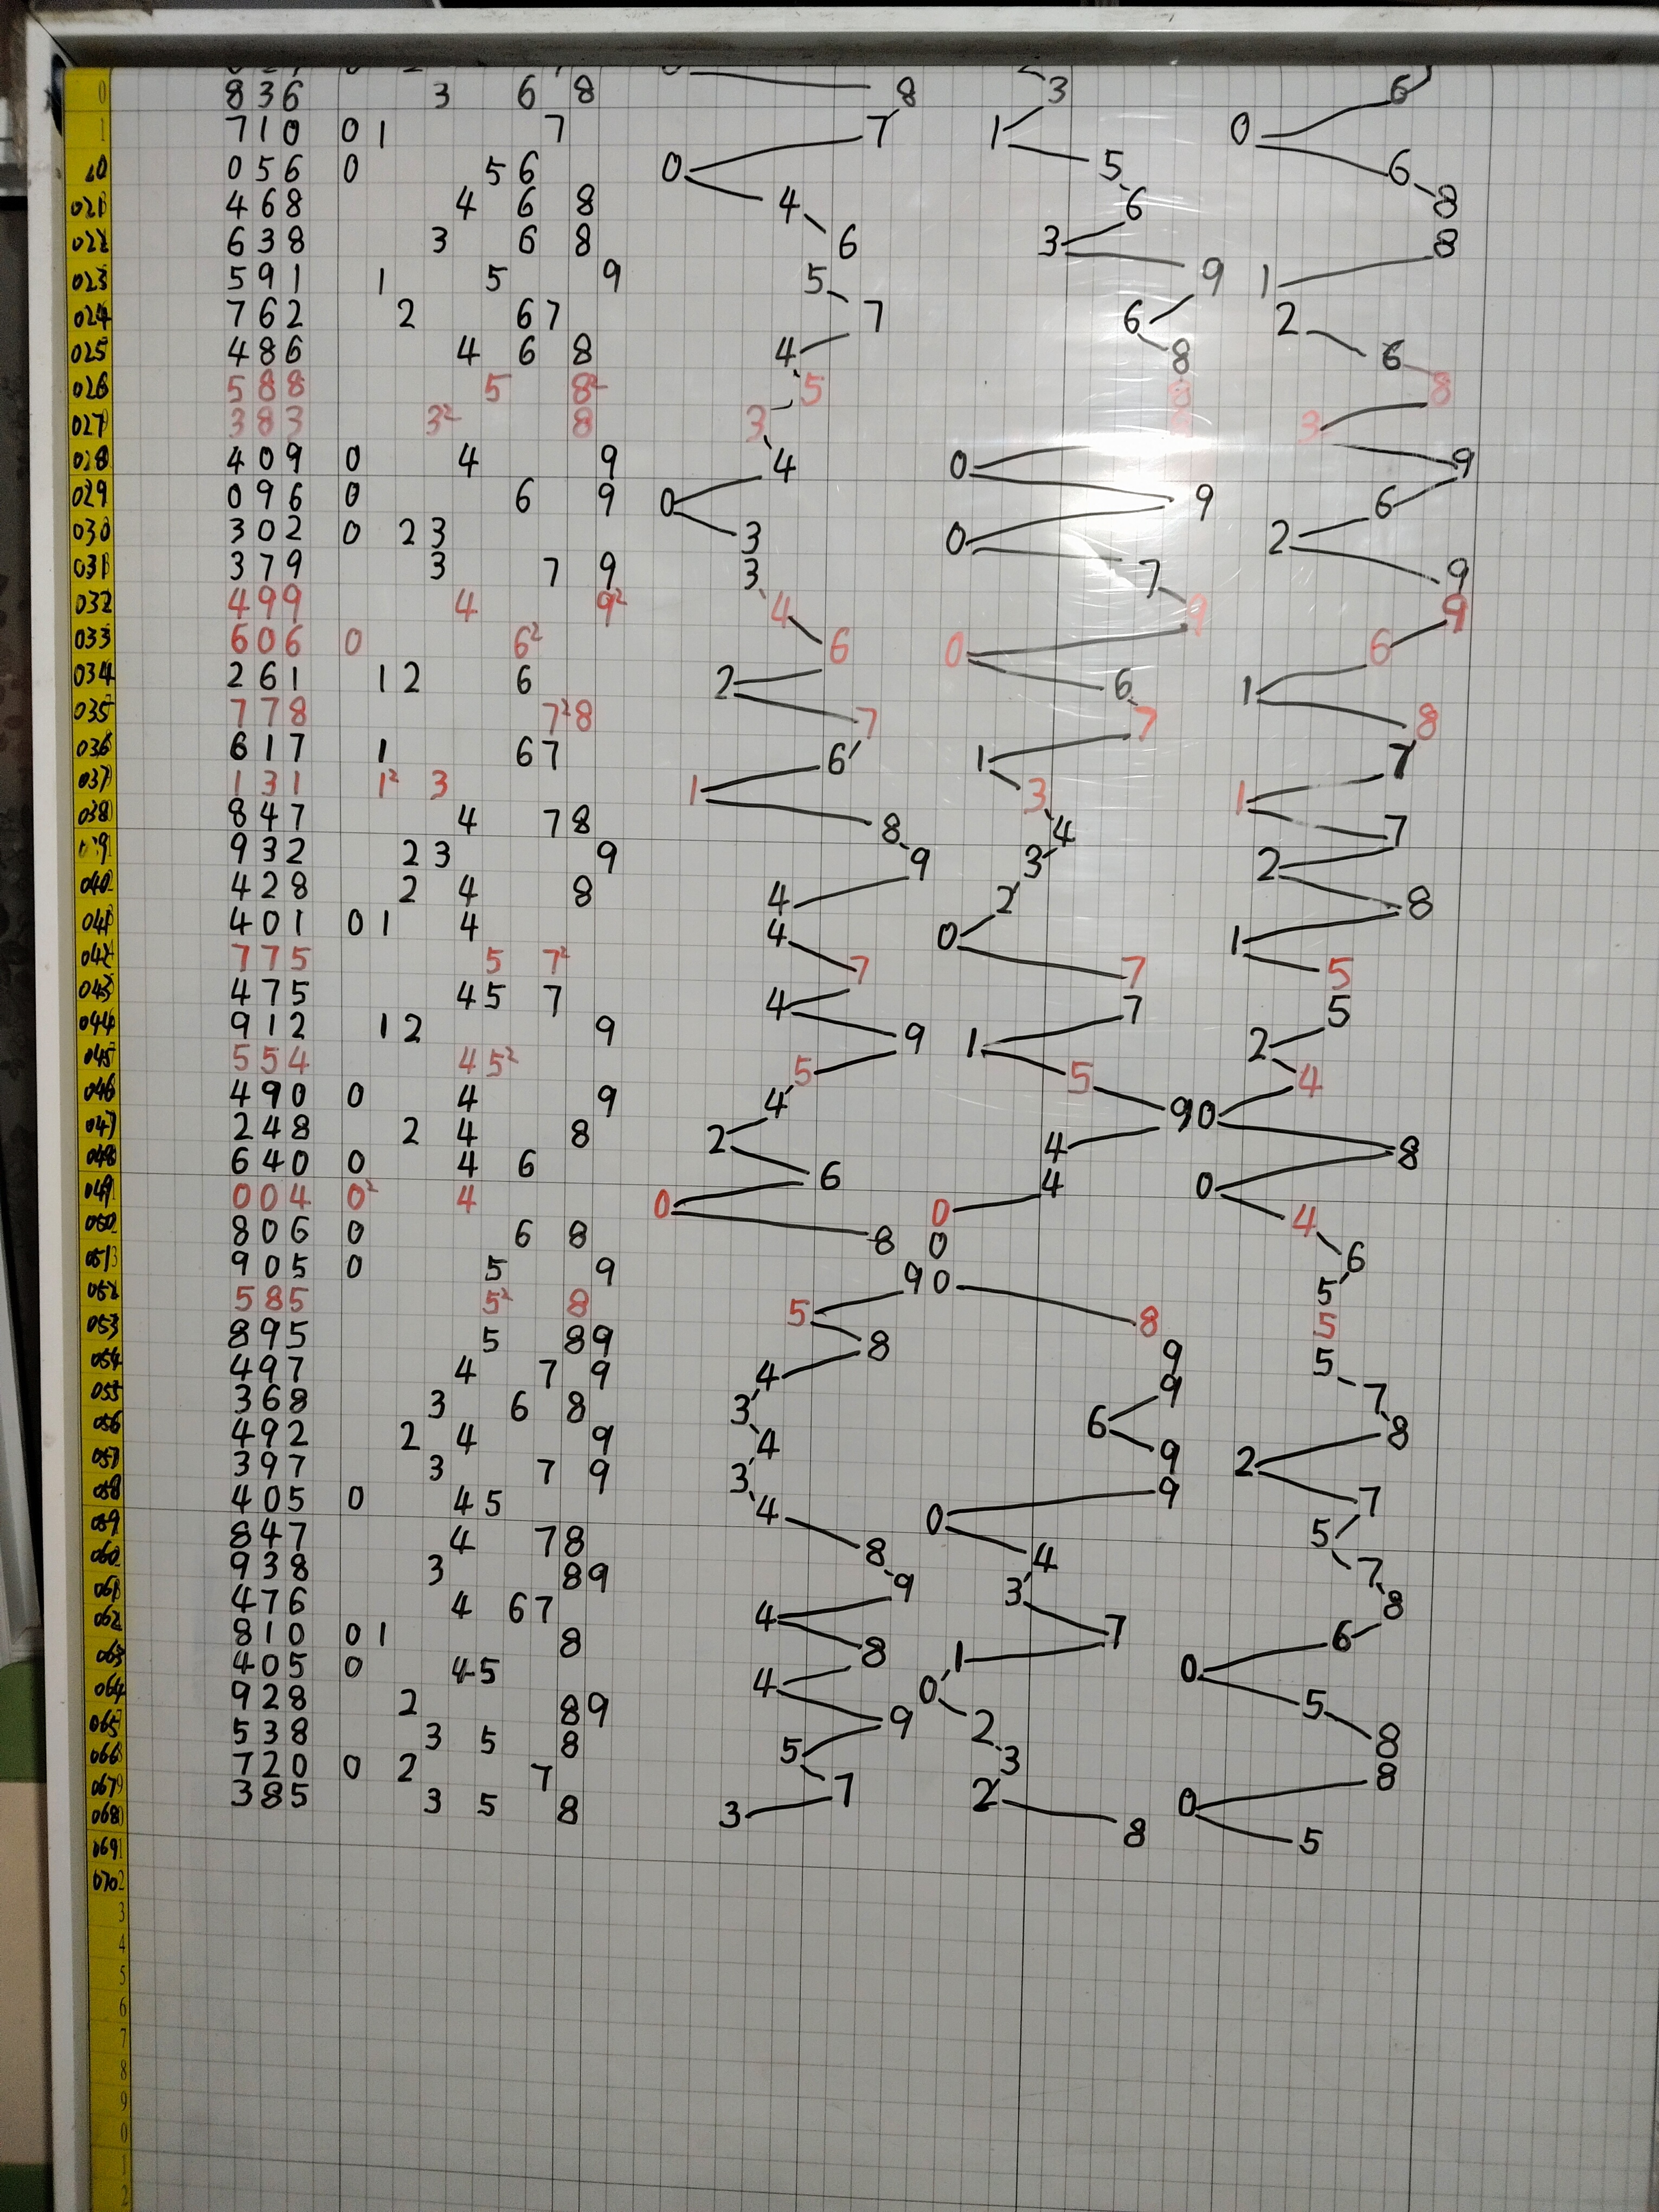 0 836 3 6 8 8 3 6
1 710 0 1 7 7 1 0
20 056 0 5 6 0 5 6
021 468 4 6 8 4 6 8
022 638 3 6 8 6 3 8
023 591 1 5 9 5 9 1
024 762 2 6 7 7 6 2
025 486 4 6 8 4 8 6
026 588 5 8² 5 8 8
027 383 3² 8 3 8 3
028 409 0 4 9 4 0 9
029 096 0 6 9 0 9 6
030 302 0 2 3 3 0 2
031 379 3 7 9 3 7 9
032 499 4 9² 4 9 9
033 606 0 6² 6 0 6
034 261 1 2 6 2 6 1
035 778 7² 8 7 7 8
036 617 1 6 7 6 1 7
037 131 1² 3 1 3 1
038 847 4 7 8 8 4 7
039 932 2 3 9 9 3 2
040 428 2 4 8 4 2 8
041 401 0 1 4 4 0 1
042 775 5 7² 7 7 5
043 475 4 5 7 4 7 5
044 912 1 2 9 9 1 2
045 554 4 5² 5 5 4
046 490 0 4 9 4 9 0
047 248 2 4 8 2 4 8
048 640 0 4 6 6 4 0
049 004 0² 4 0 0 4
050 806 0 6 8 8 0 6
051 905 0 5 9 9 0 5
052 585 5² 8 5 8 5
053 895 5 8 9 8 9 5
054 497 4 7 9 4 9 7
055 368 3 6 8 3 6 8
056 492 2 4 9 4 9 2
057 397 3 7 9 3 9 7
058 405 0 4 5 4 0 5
059 847 4 7 8 8 4 7
060 938 3 8 9 9 3 8
061 476 4 6 7 4 7 6
062 810 0 1 8 8 1 0
063 405 0 4 5 4 0 5
064 928 2 8 9 9 2 8
065 538 3 5 8 5 3 8
066 720 0 2 7 7 2 0
067 385 3 5 8 3 8 5
068
069
070
3
4
5
6
7
8
9
0
1
2